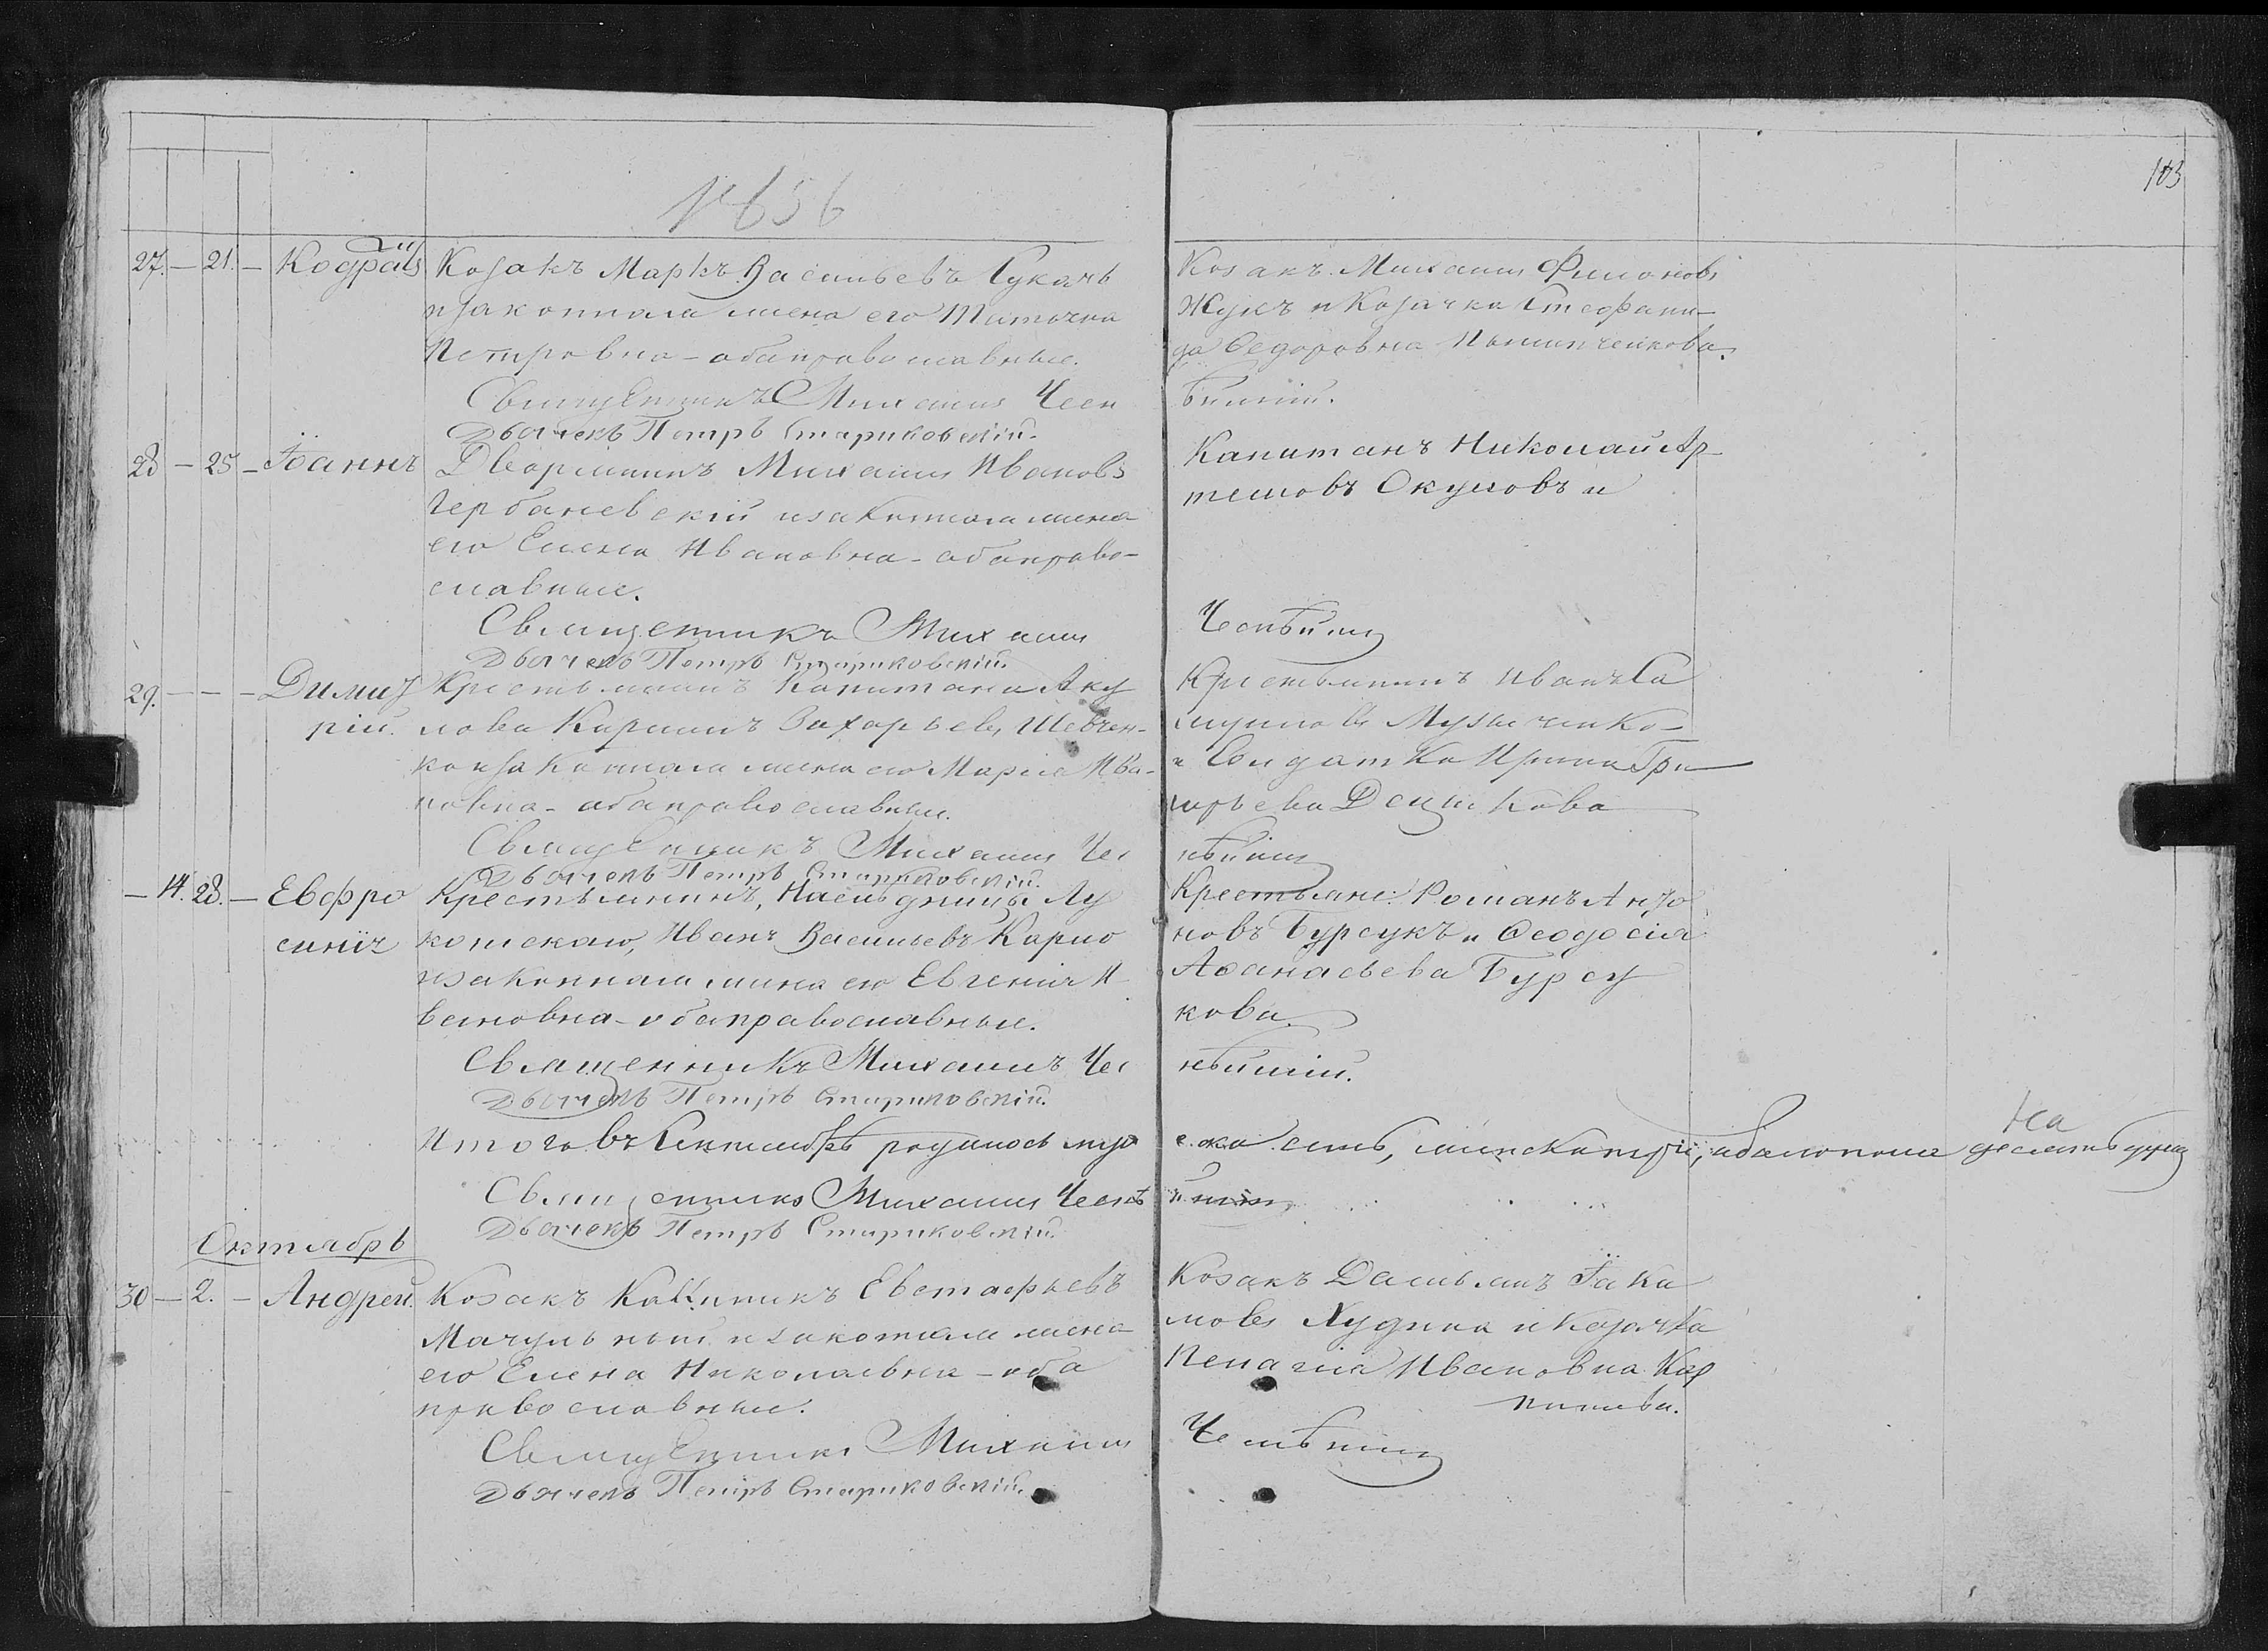 1856
103
27. — 21. — Кодратъ
Козакъ Маркъ Васильевъ Сукачь
и законная жена его Татіяна
Петровна – оба православные.
Священникъ Михаилъ Чесн
Дьячекъ Петръ Стариковскій.
Козакъ Михаилъ Филоновъ
Жукъ и Козачка Стефани-
да Ѳедоровна
ѣйшій.
28 — 25 — Іоаннъ
Дворянинъ Михаилъ Ивановъ
Чербаневскій и законная жена
его Елена Ивановна – оба право-
славные.
Священникъ Михаилъ
Дьячекъ Петръ Стариковскій.
Капитанъ Николай Ар-
темовъ Окуловъ и
Честнѣйшій
29. — — — Димит
рій.
Крестьянинъ Капитана Аку
лова Кирилъ Захарьевъ Шевчен-
ко и законная жена его Марія Ива-
новна – оба православные.
Священникъ Михаилъ Чес
Дьячекъ Петръ Стариковскій.
Крестьянинъ Иванъ Са
муиловъ Музыченко
и Солдатка Ирина Гри
горьева
нѣйшій
— 14. 28. — Евфро
синія
Крестьянинъ, Наслѣдницы Лу
комскаго, Иванъ Васильевъ Карно
и законная жена его Евгенія И
вановна – оба православные.
Священникъ Михаилъ Чес
Дьячекъ Петръ Стариковскій.
Крестьяне: Романъ Анто
новъ Бурсукъ и Ѳеодосія
Аѳанасьева Бурсу
кова.
нѣйшій.
Итого въ Сентябрѣ родилось муж
еска семь, женска три, обоего пола десять душъ
на
Священникъ Михаилъ Чеснѣ
йшій
Дьячекъ Петръ Стариковскій.
Октябрь
30 — 2. — Андрей.
Козакъ Каллиникъ Евстафьевъ
Мачульный и законная жена
его Елена Николаевна – оба
православные.
Священникъ Михаилъ
Дьячекъ Петръ Стариковскій.
Козакъ Даміянъ Іаки
мовъ Худина и Козачка
Пелагія Ивановна Кар
пинева.
Чеснѣйшій